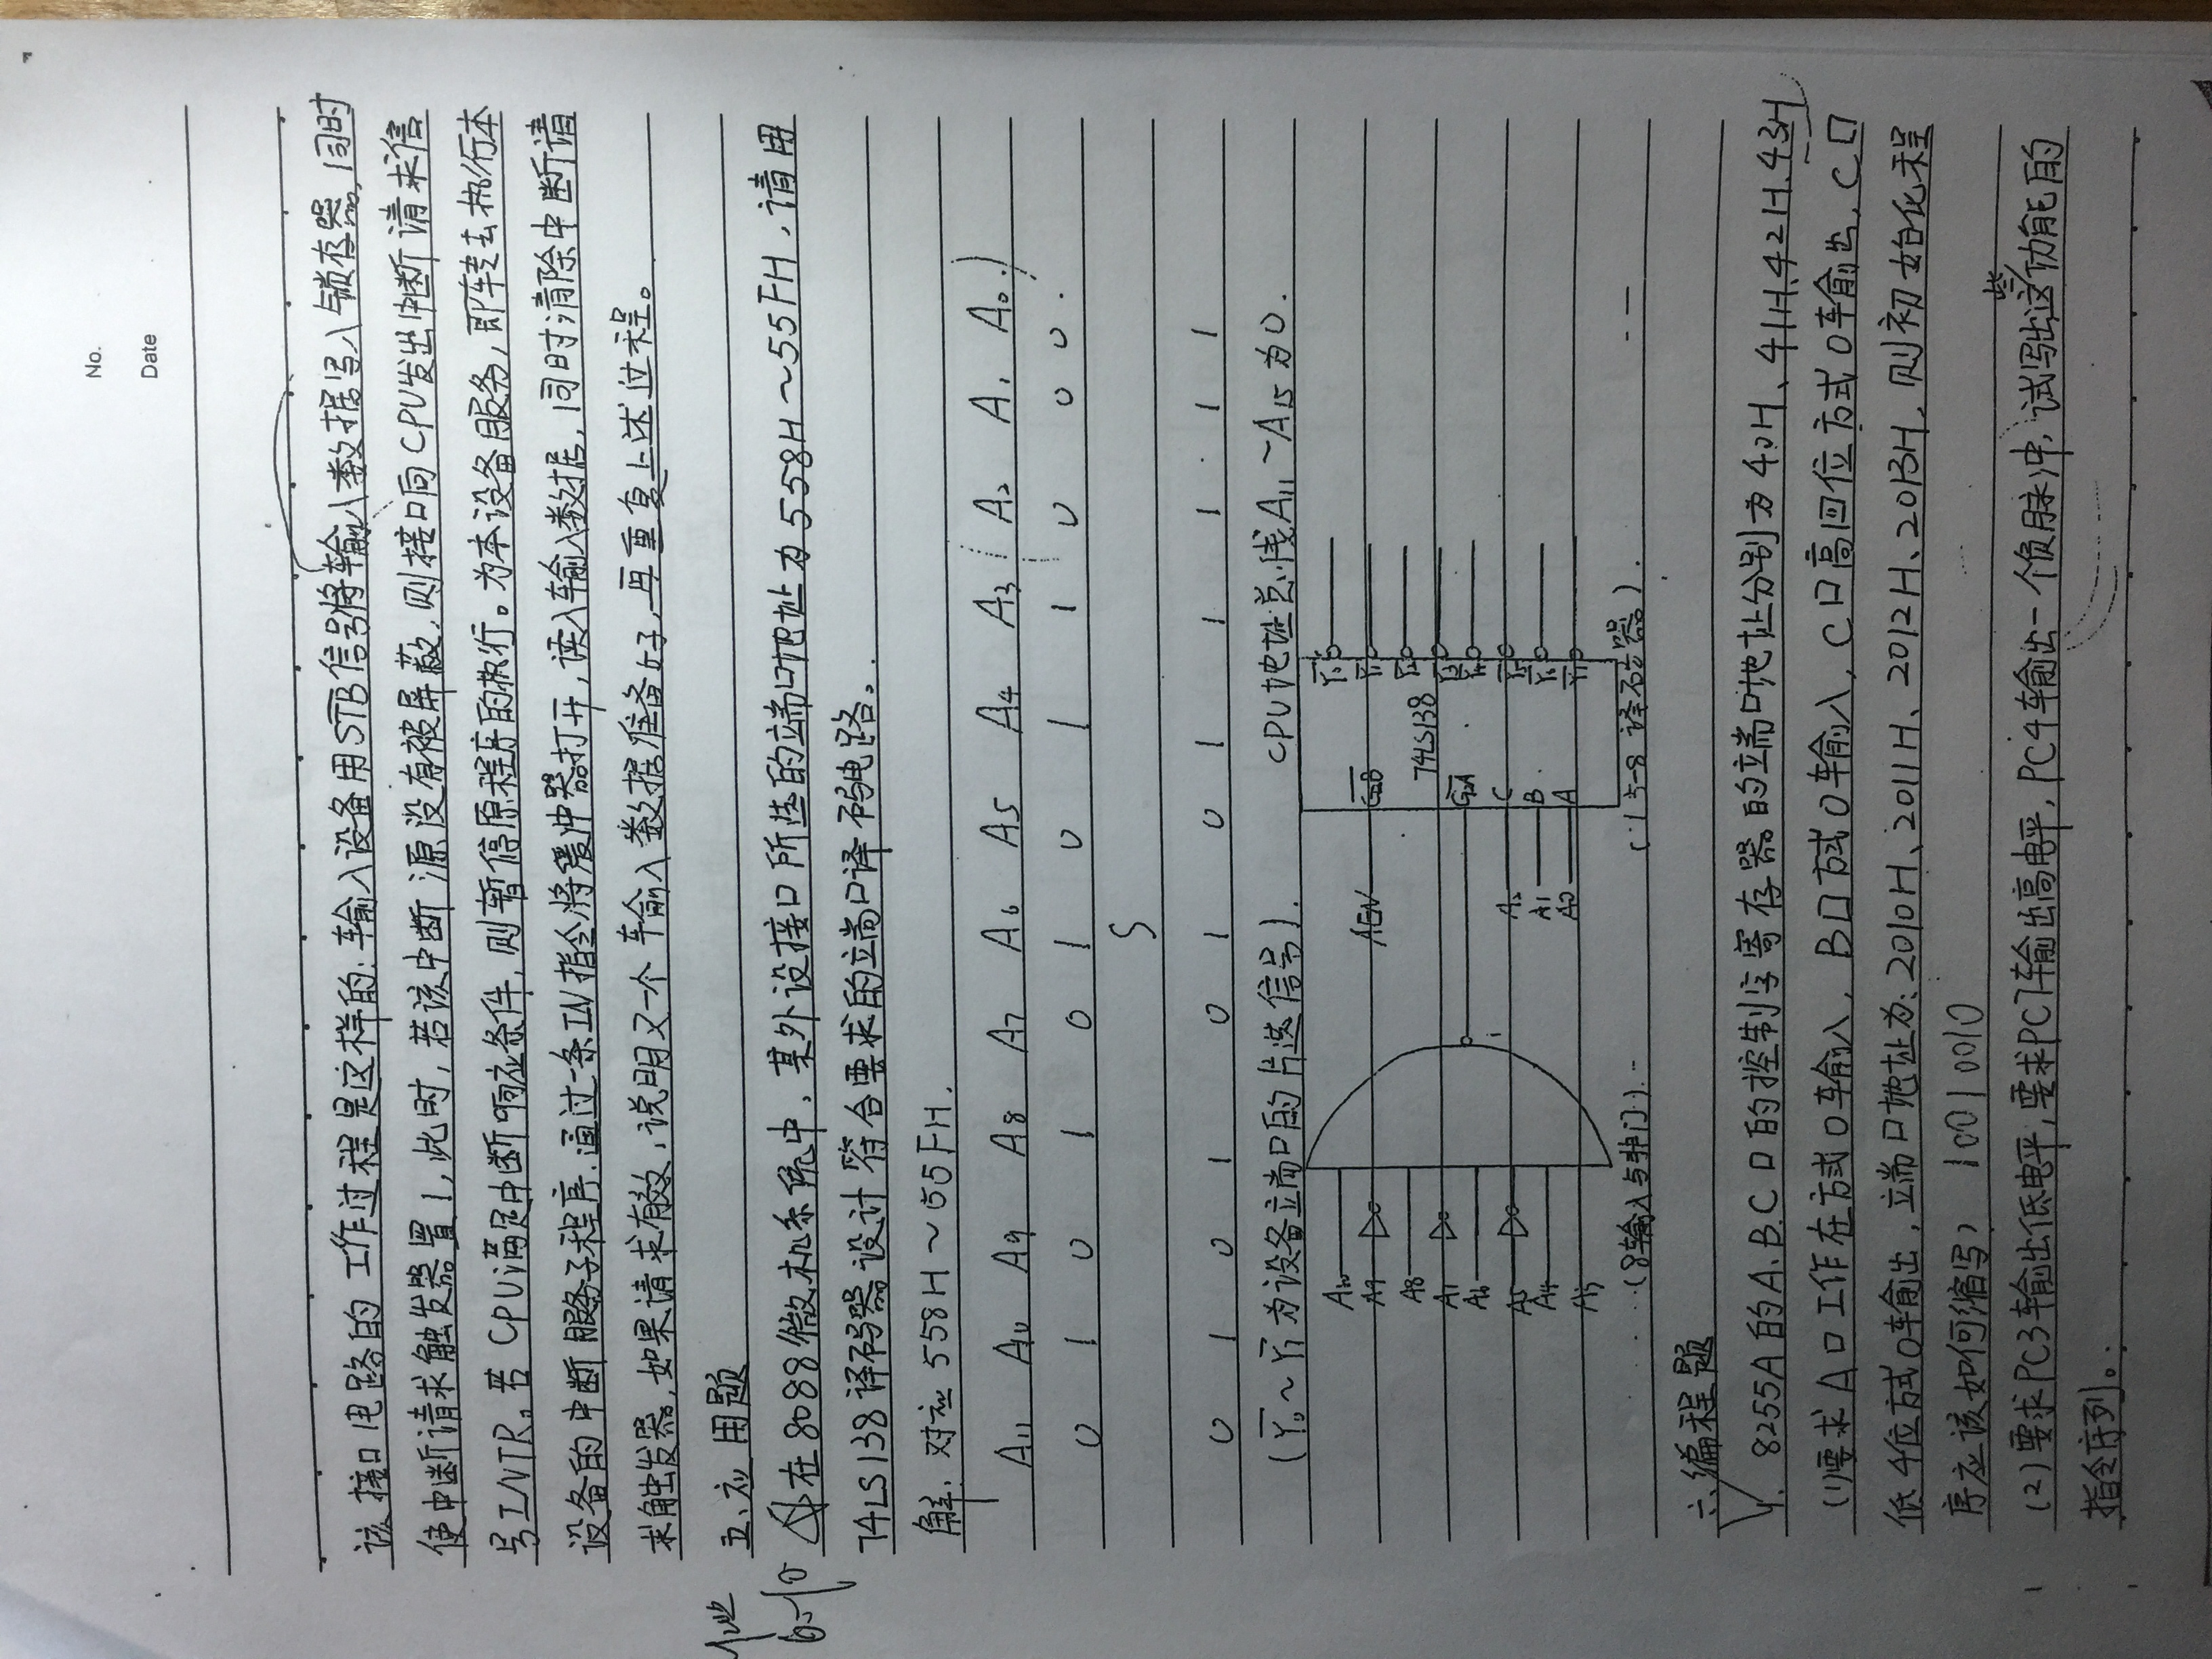 No.
Date
该接口电路的工作过程是这样的:输入设备用STB信号将输入数据写入锁存器,同时
使中断请求触发器置1,此时,若该中断源没有被屏蔽,则接口向CPU发出中断请求信
号INTR。若CPU满足中断响应条件,则暂停原程序的执行。为本设备服务,即转去执行本
设备的中断服务子程序.通过一条IN指令将缓冲器打开,读入输入数据,同时清除中断请
求触发器,如果请求有效,说明又一个输入数据准备好,再重复上述过程。
五、应用题
在8088微机系统中,某外设接口所选的端口地址为558H~55FH,请用
74LS138译码器设计符合要求的端口译码电路。
解:对应558H~55FH.
A11 A10 A9 A8 A7 A6 A5 A4 A3 A2 A1 A0
0 1 0 1 0 1 0 1 1 0 0 0
0 1 0 1 0 1 0 1 1 1 1 1
(Y0~Y7为设备端口的片选信号). CPU地址总线A11~A15为0.
A10
A9
A8
A7
A6
A5
A4
A3
(8输入与非门)
AEN
G2B
74LS138
G2A
A2 C
A1 B
A0 A
Y0
Y1
Y2
Y3
Y4
Y5
Y6
Y7
译码器).
六.编程题
1. 8255A的A.B.C口的控制字寄存器的端口地址分别为40H、41H、42H、43H
(1)要求A口工作在方式0输入,B口方式0输入,C口高四位方式0输出,C口
低4位方式0输出,端口地址为:2010H、2011H、2012H、2013H,则初始化程
序应该如何编写? 10010010
(2)要求PC3输出低电平,要求PC7输出高电平,PC4输出一个负脉冲,试写出这些功能的
指令序列。